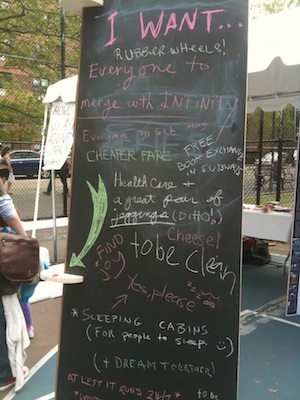 I WANT...
RUBBER WHEELS!
Everyone to
merge with INFINITY
Everyone to get
CHEAPER FARE
FREE/
BOOK EXCHANGE
IN SUBWAYS
Healthcare +
a great pair of
jeggings (DITTO!)
Cheese!
FIND
JOY
to be Clean
Yes, please
*SLEEPING CABINS
(FOR people to sleep :)
(+ DREAM TOGETHER)
AT LEST IT RUNS 24/7 *
to be